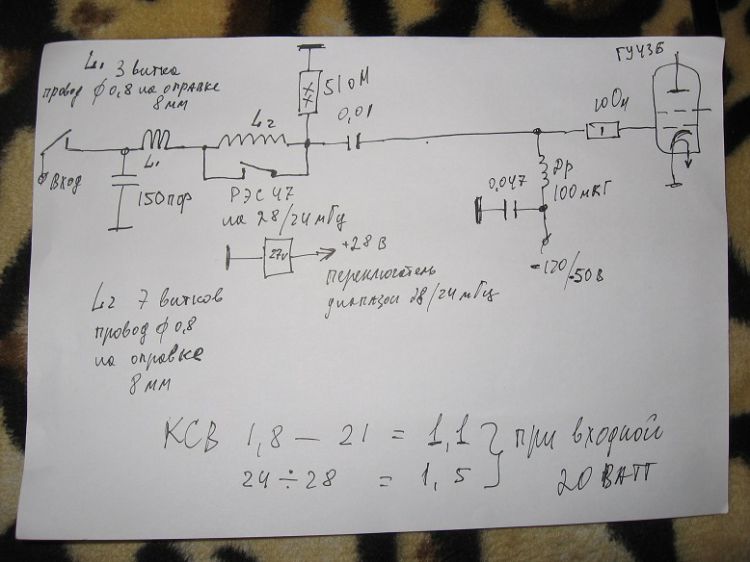 L1 3 витка
провод ф 0,8 на оправке
8 мм
510м
0,01
ГУ43Б
100м
L1
L2
Вход
150 пф
РЭС 47
на 28/24 мГц
0,047
Др
100 мкГ
-120/-50 в
27v
+28 В
переключатель
диапазон 28/24 мГц
L2 7 витков
провод ф 0,8
на оправке
8 мм
КСВ 1,8 — 21 = 1,1 } при входной
24 ÷ 28 = 1,5 20 ВАТТ